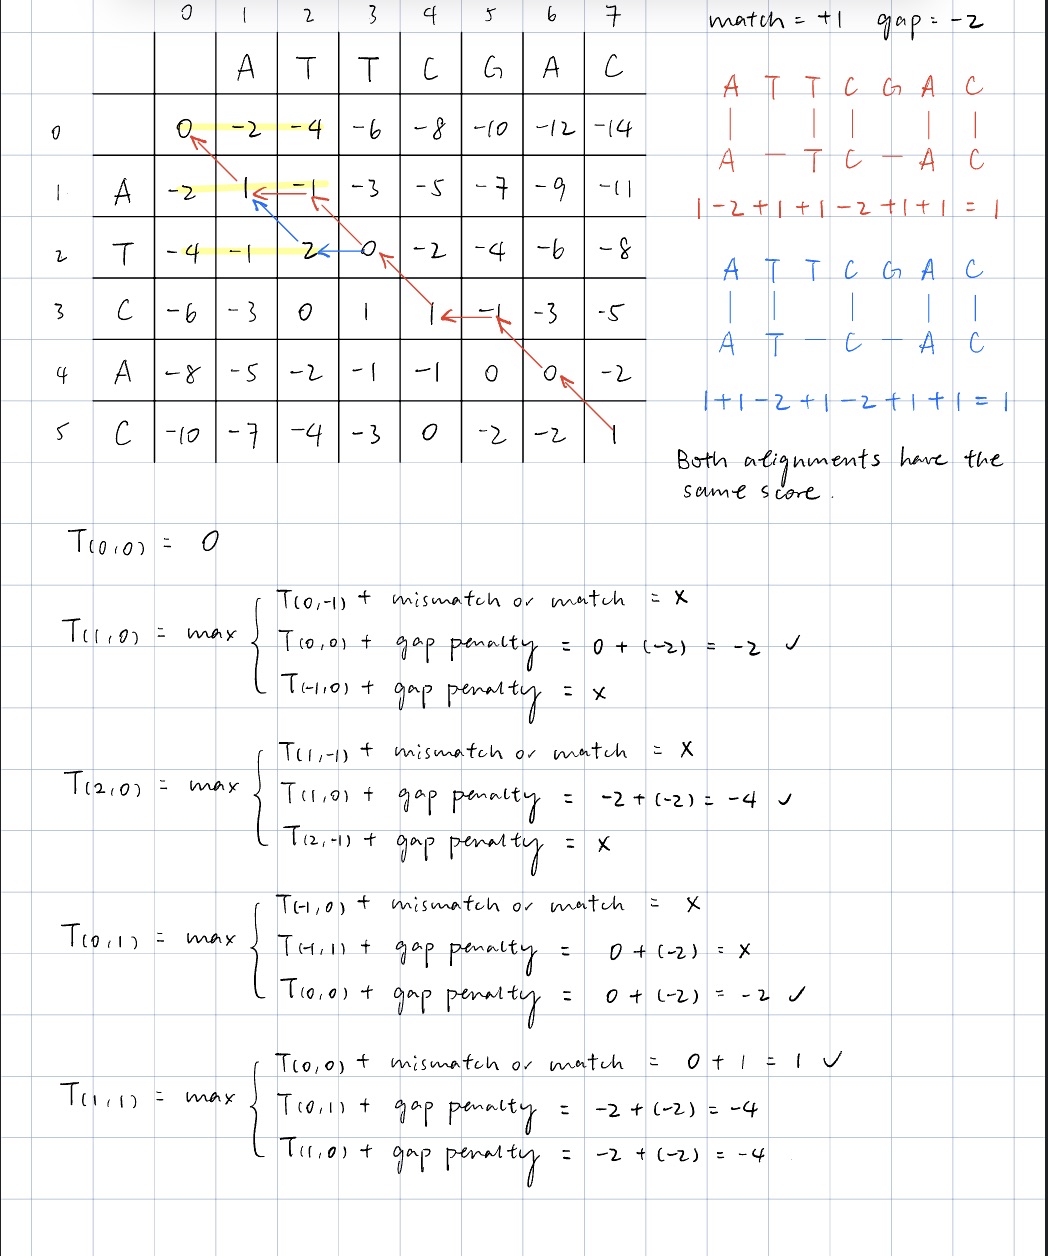 0 1 2 3 4 5 6 7
match = +1 gap = -2
A T T C G A C
0 0 -2 -4 -6 -8 -10 -12 -14
1 A -2 1 -1 -3 -5 -7 -9 -11
2 T -4 -1 2 0 -2 -4 -6 -8
3 C -6 -3 0 1 1 -1 -3 -5
4 A -8 -5 -2 -1 -1 0 0 -2
5 C -10 -7 -4 -3 0 -2 -2 1
A T T C G A C
| | | | |
A - T C - A C
1-2+1+1-2+1+1 = 1
A T T C G A C
| | | | |
A T - C - A C
1+1-2+1-2+1+1 = 1
Both alignments have the
same score.
T(0,0) = 0
T(0,-1) + mismatch or match = x
T(1,0) = max { T(0,0) + gap penalty = 0 + (-2) = -2 ✓
T(-1,0) + gap penalty = x
T(1,-1) + mismatch or match = x
T(2,0) = max { T(1,0) + gap penalty = -2 + (-2) = -4 ✓
T(2,-1) + gap penalty = x
T(-1,0) + mismatch or match = x
T(0,1) = max { T(-1,1) + gap penalty = 0 + (-2) = x
T(0,0) + gap penalty = 0 + (-2) = -2 ✓
T(0,0) + mismatch or match = 0 + 1 = 1 ✓
T(1,1) = max { T(0,1) + gap penalty = -2 + (-2) = -4
T(1,0) + gap penalty = -2 + (-2) = -4